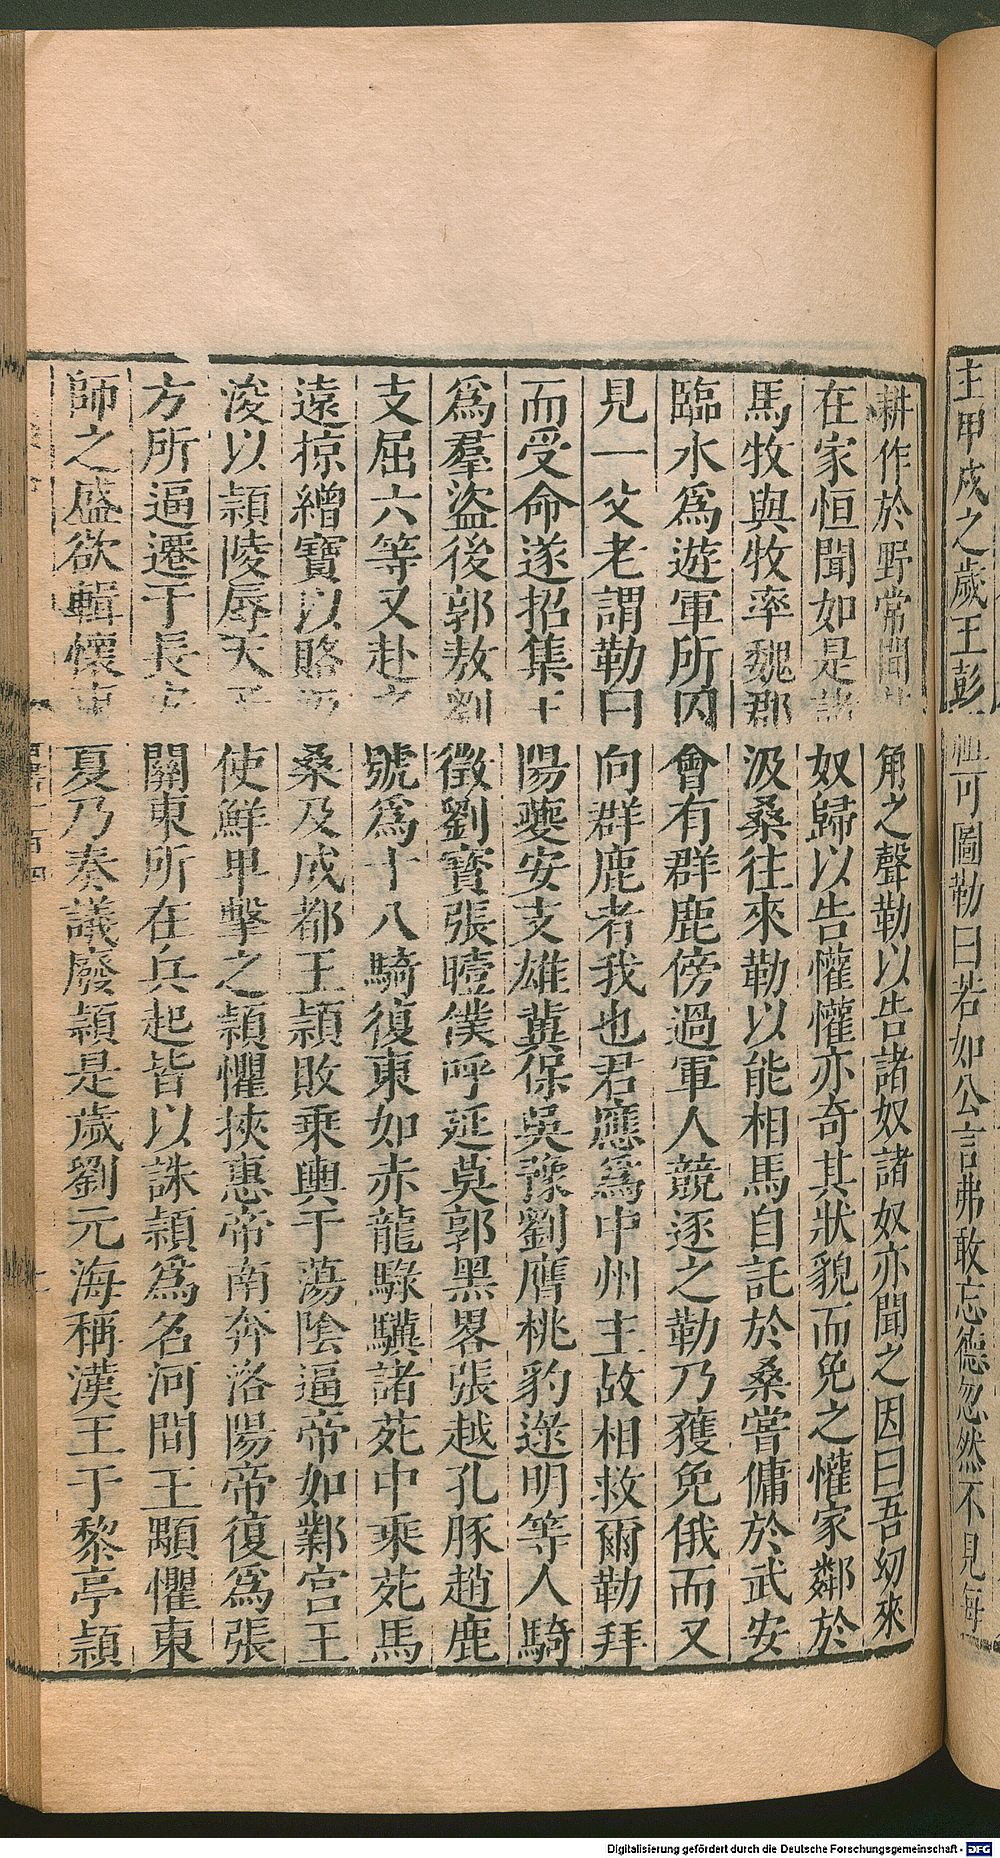 主甲戍之歲王彭祖可圖勒曰若如公言弗敢忘德忽然不見每
耕作於野常聞鼓角之聲勒以告諸奴諸奴亦聞之因曰吾幼來
在家恒聞如是諸奴歸以告懽懽亦奇其狀貌而免之懽家鄰於
馬牧與牧率魏郡汲桑往來勒以能相馬自託於桑嘗傭於武安
臨水爲遊軍所囚會有群鹿傍過軍人競逐之勒乃獲免俄而又
見一父老謂勒曰向群鹿者我也君應爲中州主故相救爾勒拜
而受命遂招集王陽夔安支雄冀保吳豫劉膺桃豹逯明等八騎
爲羣盜後郭敖劉徵劉寶張曀僕呼延莫郭黑畧張越孔豚趙鹿
支屈六等又赴之號爲十八騎復東如赤龍騄驥諸苑中乘苑馬
遠掠繒寶以賂汲桑及成都王頴敗乘輿于蕩陰逼帝如鄴宮王
浚以頴陵辱天子使鮮卑擊之頴懼挾惠帝南奔洛陽帝復爲張
方所逼遷于長安關東所在兵起皆以誅頴爲名河間王顒懼東
師之盛欲輯懷東夏乃奏議廢頴是歲劉元海稱漢王于黎亭頴
Digitalisierung gefördert durch die Deutsche Forschungsgemeinschaft - DFG